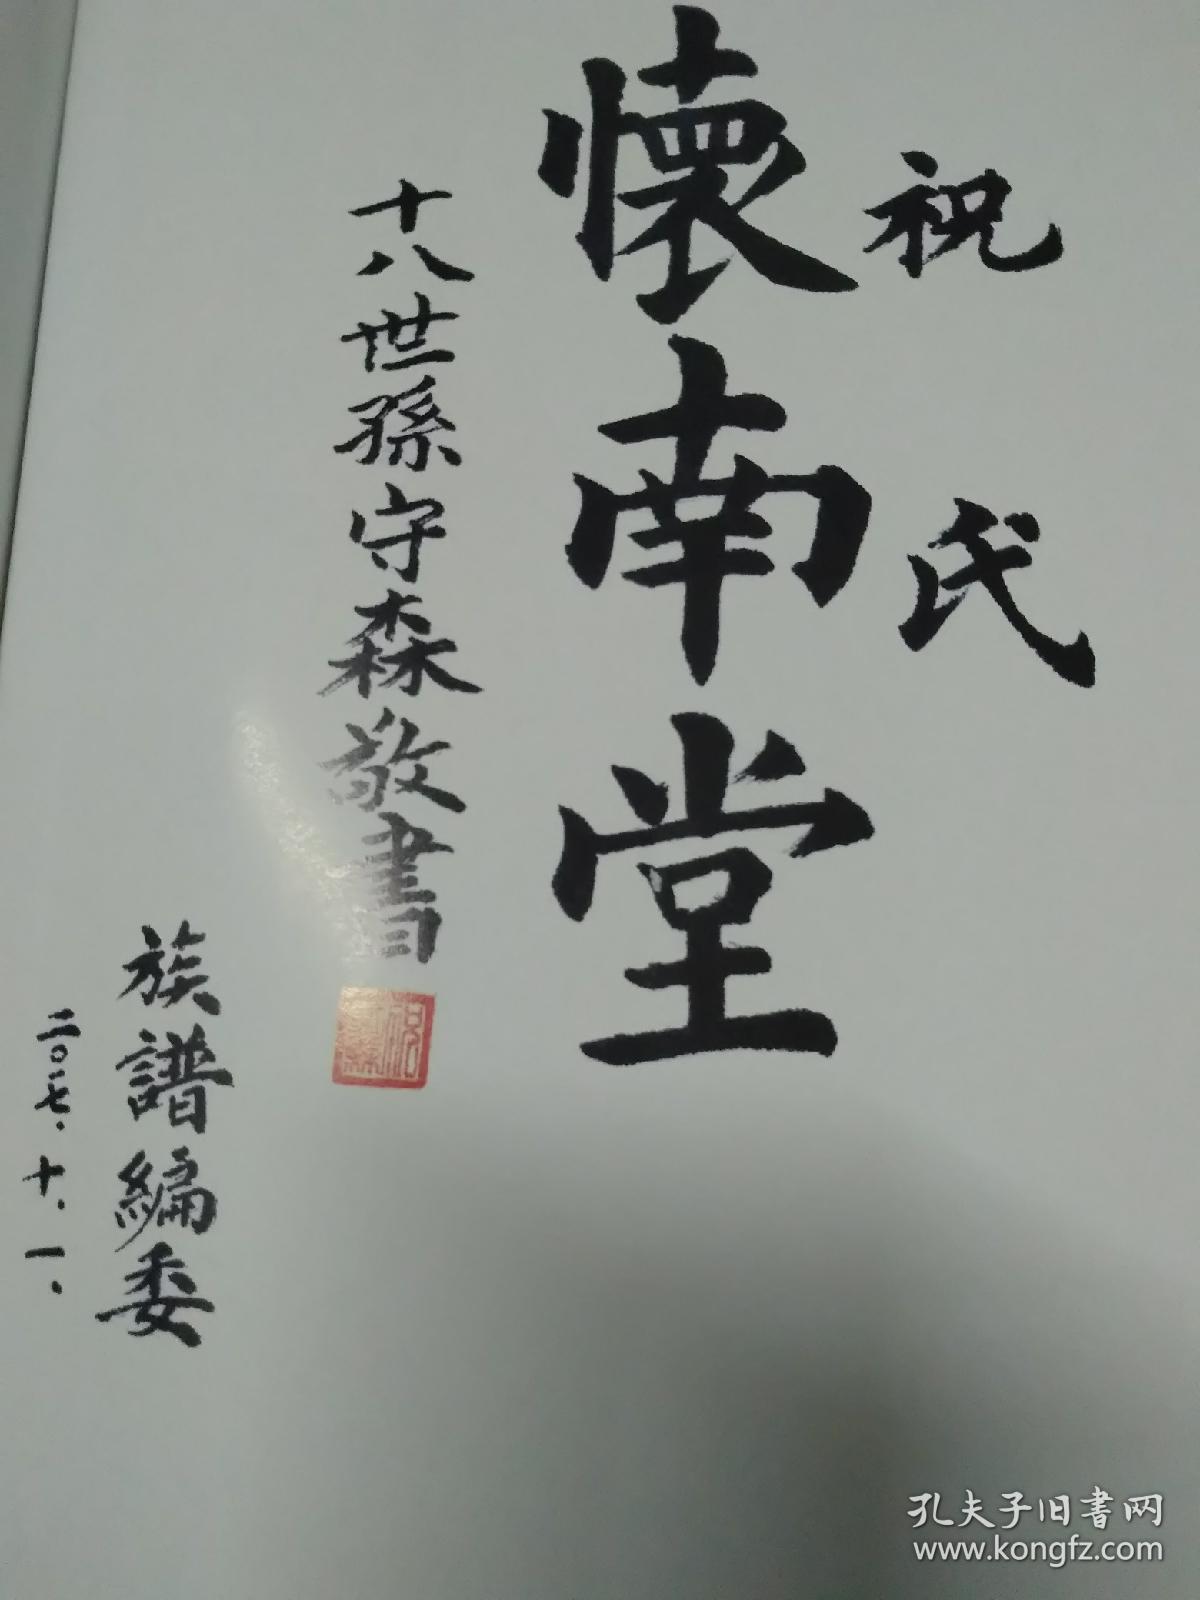 祝氏
懷南堂
十八世孫守森敬書
族譜編委
二〇一七、十、一、
孔夫子旧书网
www.kongfz.com